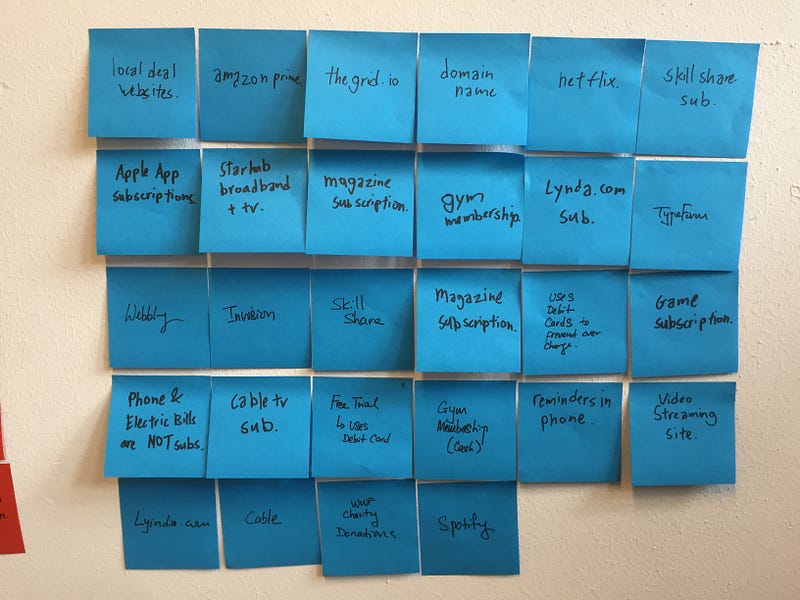 local deal
websites.
amazon prime.
thegrid.io
domain
name
netflix.
skill share
sub.
Apple App
subscriptions
Starhub
broadband
+ tv.
magazine
subscription.
gym
membership.
Lynda.com
sub.
Typeform
Webbly
Invision
Skill
Share
Magazine
subscription.
Uses
Debit
Cards to
prevent over
charge.
Game
subscription.
Phone &
Electric Bills
are NOT subs.
Cable tv
sub.
Free Trial
↳ Uses
Debit Card
Gym
Membership
(Cash)
reminders in
phone.
Video
Streaming
site.
Lyindia.com
Cable
WWF
Charity
Donations
Spotify